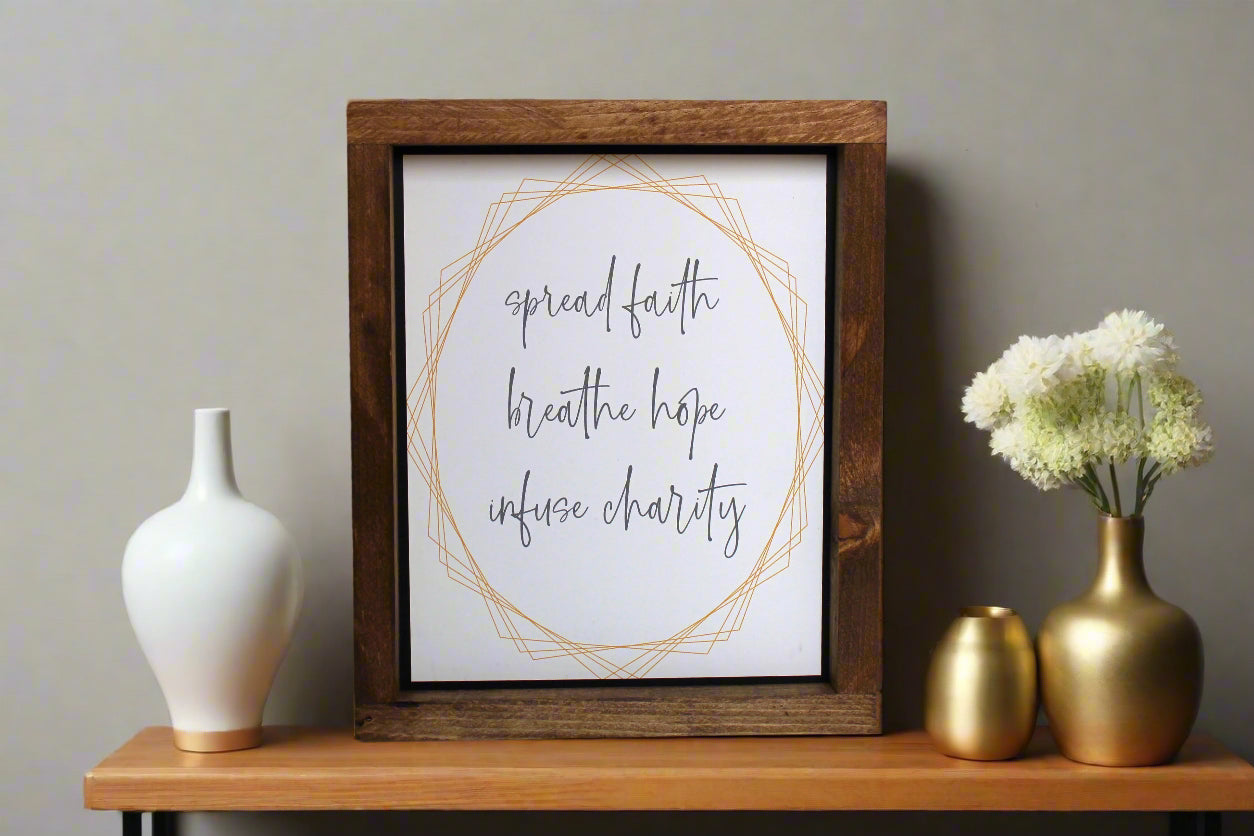 spread faith
breathe hope
infuse charity